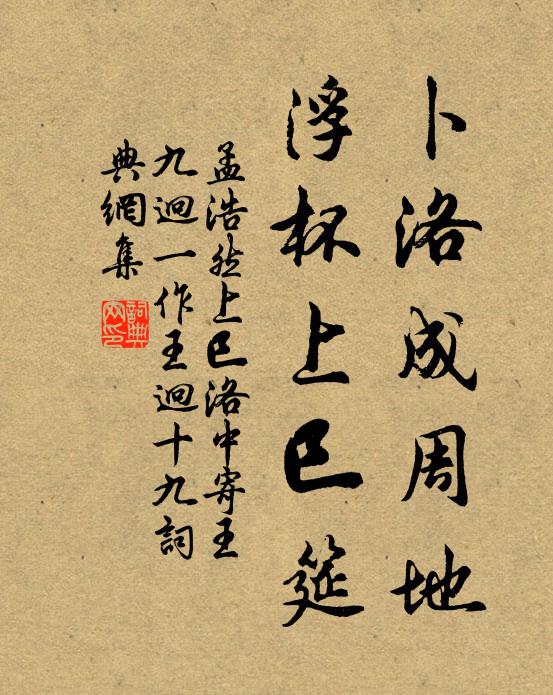 卜洛成周地
浮杯上巳筵
孟浩然上巳洛中寄王
九迥一作王迥十九詞
典網集
詞典網印